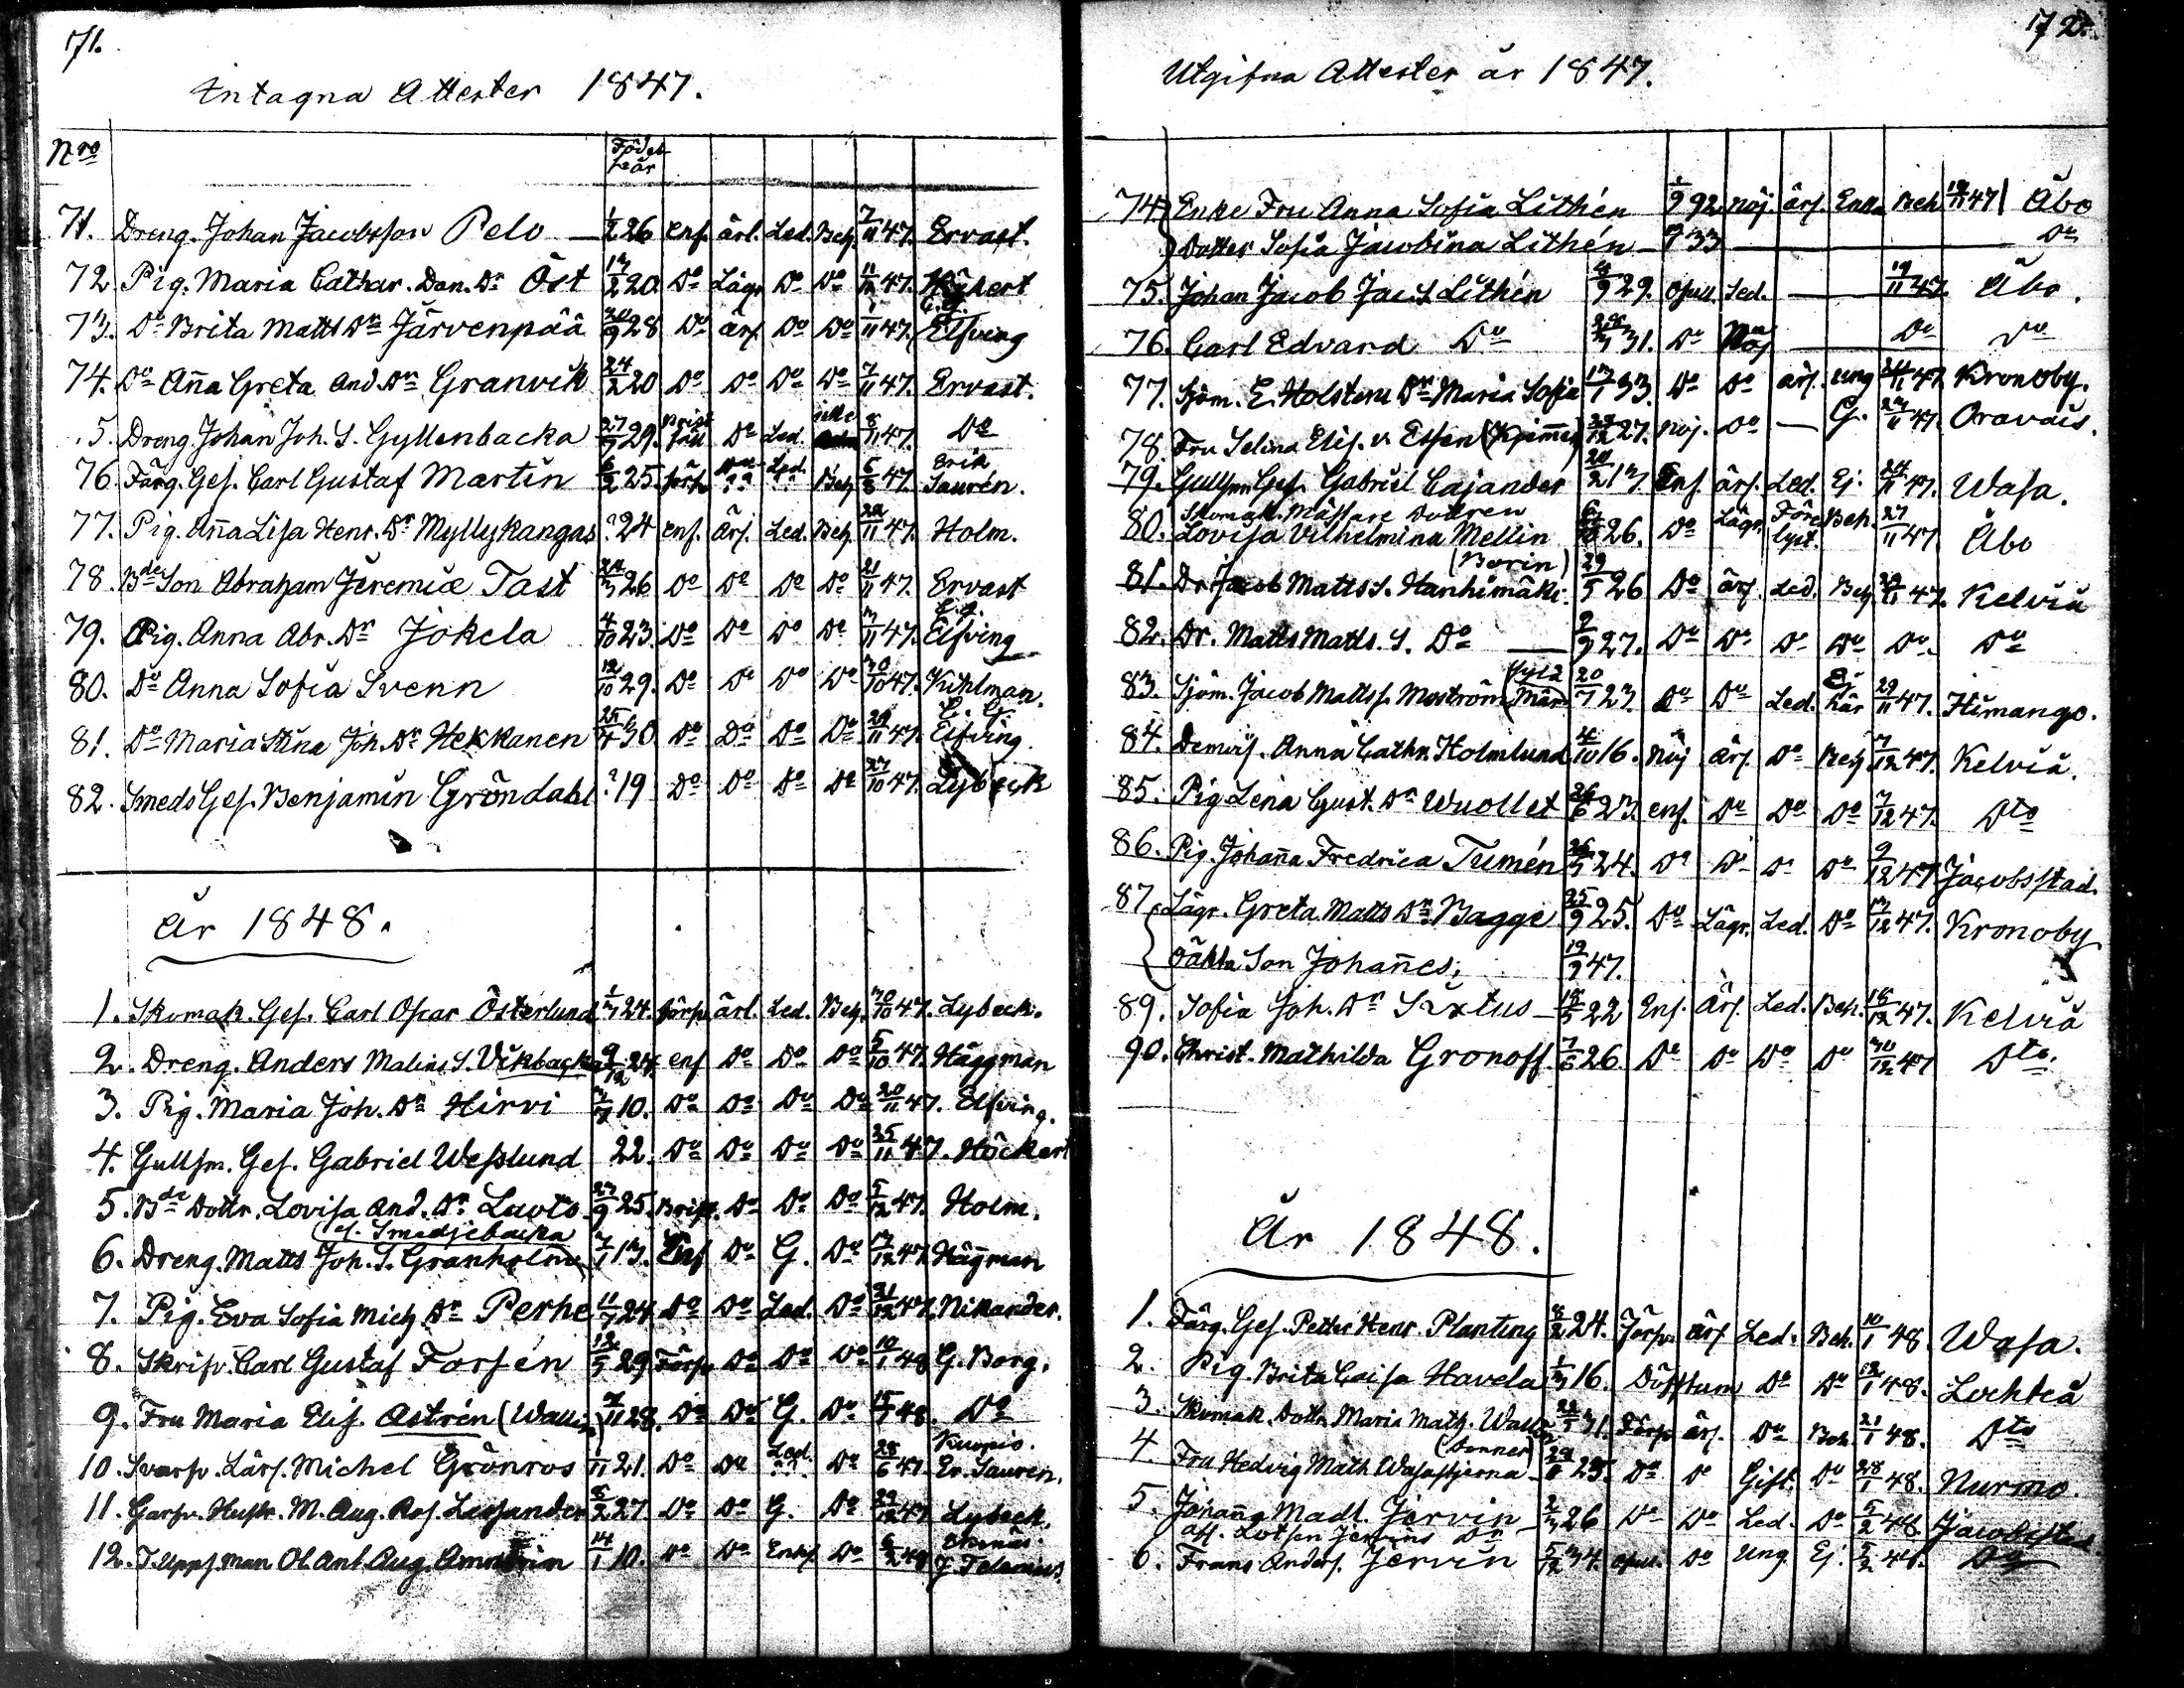 71.
Intagna Attester 1847.
Nro Födelseår
71. Dreng. Johan Jacobsson Pelo — 1/2 26 enf. ärl. Led. Beh. 7/11 47. Ervast.
72. Pig. Maria Cathar. Dan. Dr Öst 13/2 20. Do Lägr. Do Do 11/12 47.
73. Do Brita Matts Dr Järvenpää 28 Do ärl. Do Do 1/11 47. E.G. Elfving
74. Do Anna Greta And. Dr Granvik 24/2 20 Do Do Do Do 7/11 47. Ervast.
5. Dreng. Johan Joh. S. Gyllenbacka 27/7 29. Do Led. icke 8/11 47. Do
76. Färg. Ges. Carl Gustaf Martin 6/2 25. förs. Led. Beh. 6/8 47. Erik Saurén.
77. Pig. Anna Lisa Henr. Dr Myllykangas ? 24 enf. ärl. Led. Beh. 22/11 47. Holm.
78. Bde Son Abraham Jeremiæ Tast 26 Do Do Do Do 21/11 47. Ervast
79. Pig. Anna Abr. Dr Jokela 4/10 23. Do Do Do Do 3/11 47. E.G. Elfving
80. Do Anna Sofia Svenn 12/10 29. Do Do Do Do 30/10 47. Kihlman.
81. Do Maria Stina Joh. Dr Hekkanen 25/4 30 Do Do Do Do 29/11 47. E. G. Elfving.
82. Smeds Ges. Benjamin Gröndahl ? 19 Do Do Do Do 27/10 47. Lybeck
År 1848.
1. Skomak. Ges. Carl Oscar Österlund 1/3 24. förs. ärl. Led. Beh. 30/10 47. Lybeck.
2. Dreng. Anders Malins S. Vikbacka 9/12 24. enf Do Do Do 5/10 47. Häggman
3. Pig. Maria Joh. Dr Hirvi 10. Do Do Do Do 20/11 47. Elfving.
4. Gullsm. Ges. Gabriel Wesslund 22. Do Do Do Do 25/11 47. Höckert
5. Bde Dottr. Lovisa And. Dr Lavto 23/9 25. Brist. Do Do Do 5/12 47. Holm.
6. Dreng. Matts Joh. S. Granholm (el. Smedjebacka) 7/1 13. Enf Do G. Do 13/12 47. Hägman
7. Pig. Eva Sofia Mich. Dr Perhe 11/7 24. Do Do Led. Do 21/12 47. Nikander.
8. Skrifv. Carl Gustaf Forsén 12/5 29 Förs. Do Do Do 10/1 48 G. Borg.
9. Fru Maria Elis. Astrén 28. Do Do G. Do 15/1 48. Do
10. Svarfv. Lärl. Michel Grönros 21. Do Do Led. Do 28/6 47. Kuopio. Er. Sauren.
11. Garfv. Hustr. M. Aug. Ros. 8/2 27. Do Do G. Do 29/12 47 Lybeck.
12. T. Upps. man Ol. Ant. Aug. 14/1 10. Do Do Enkl. Do 6/2 48 Ekenäs.
172.
Utgifna Attester år 1847.
74. Enke Fru Anna Sofia Lithén 1/9 92. nöj. ärl. Enka Beh. 19/11 47 Åbo
Dotter Sofia Jacobina Lithén — 33 — Do
75. Johan Jacob Jac. S. Lithén 29. Led. — 19/11 47 Åbo.
76. Carl Edvard Do 31. Do Nöj — Do Do
77. Sjöm. E. Holstens Dr Maria Sofia 13/1 33. Do Do ärl. ung 47 Kronoby.
78. Fru Selina Elis. v. Essen 27. nöj. Do — G. 23/11 47. Oravais.
79. Gullsm. Ges. Gabriel Cajander 20/2 13. Enf. ärl. Led. Ej. 24/11 47. Wasa.
Skomak. Mästare Dottren
80. Lovisa Vilhelmina Mellin 26. Do Lägr. Förelyst. Beh. 27/11 47. Åbo
(Borin)
81. Dr. Jacob Matts S. Hanhimäki 29/5 26 Do ärl. Led. Beh. 47. Kelviå
82. Dr. Matts Matts. S. Do — 2/9 27. Do Do Do Do Do Do
83. Sjöm. Jacob Mattss. Moström 20/7 23. Do Do Led. Ej här 29/11 47. Himango.
84. Demois. Anna Cathr. Holmlund 4/10 16. nöj ärl. Do Beh. 7/12 47. Kelviå.
85. Pig. Lena Gust. Dr Wuollet 26/6 23. enf. Do Do Do 7/12 47. Dto
86. Pig. Johanna Fredrica Tumén 26/5 24. Do Do Do Do 9/12 47. Jacobsstad.
87. Lägr. Greta Matts Dr Bagge 25/9 25. Do Lägr. Led. Do 13/12 47. Kronoby
Oäkta Son Johannes, 19/9 47.
89. Sofia Joh. Dr Sixtus — 18/5 22 Enf. ärl. Led. Beh. 18/12 47. Kelviå
90. Christ. Mathilda Gronoff. 7/6 26. Do Do Do Do 30/12 47 Dto.
År 1848.
1. Färg. Ges. Petter Henr. Planting 8/2 24. Förs. ärl. Led. Beh. 10/1 48. Wasa.
2. Pig. Brita Caisa Havela 1/3 16. Döfstum Do Do 12/1 48. Lochteå
3. Skomak. Dottr. Maria Math. 31. Förs. ärl. Do Beh. 21/1 48. Dto
4. Fru Hedvig Math. Wasastjerna (Donner) 25. Do Do Gift. Do 28/1 48. Nurmo.
5. Johanna Madl. Jervin — 2/3 26 Do Do Led. Do 5/2 48. Jacobstad
afl. Lotsen Jervins Dr
6. Frans Anders. Jervin 5/12 34. Do Ung. Ej. 5/2 48. Do